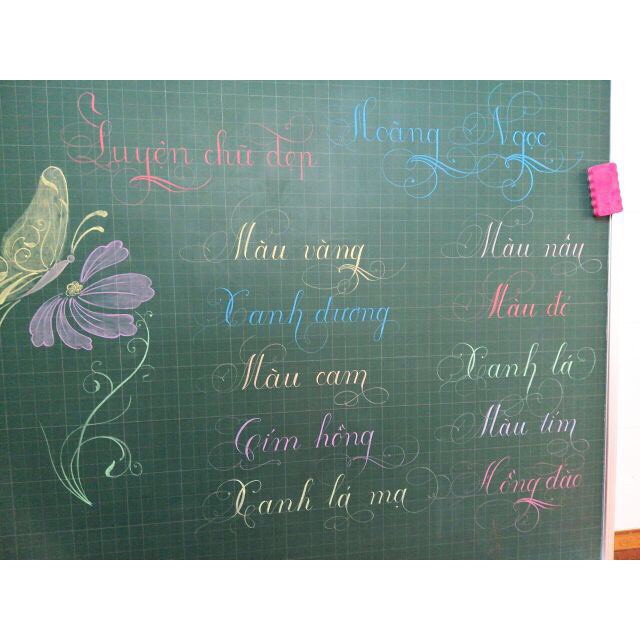 Luyện chữ đẹp Hoàng Ngọc
Màu vàng Màu nâu
Xanh dương Màu đỏ
Màu cam Xanh lá
Tím hồng Màu tím
Xanh lá mạ Hồng đào